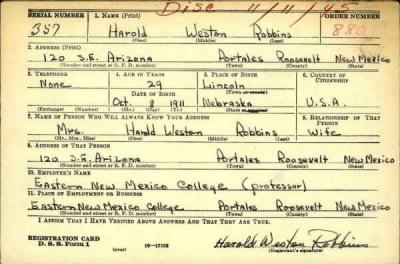 Disc 11/11/45
SERIAL NUMBER 1. NAME (Print) ORDER NUMBER
357 Harold Weston Robbins 880
(First) (Middle) (Last)
2. ADDRESS (Print)
120 S.E. Arizona Portales Roosevelt New Mexico
(Number and street or R. F. D. number) (Town) (County) (State)
3. TELEPHONE 4. AGE IN YEARS 5. PLACE OF BIRTH 6. COUNTRY OF CITIZENSHIP
None 29 Lincoln
DATE OF BIRTH (Town or county)
Oct. 8 1911 Nebraska U.S.A.
(Exchange) (Number) (Mo.) (Day) (Yr.) (State or country)
7. NAME OF PERSON WHO WILL ALWAYS KNOW YOUR ADDRESS 8. RELATIONSHIP OF THAT PERSON
Mrs. Harold Weston Robbins Wife
(Mr., Mrs., Miss) (First) (Middle) (Last)
9. ADDRESS OF THAT PERSON
120 S.E. Arizona Portales Roosevelt New Mexico
(Number and street or R. F. D. number) (Town) (County) (State)
10. EMPLOYER'S NAME
Eastern New Mexico College (professor)
11. PLACE OF EMPLOYMENT OR BUSINESS
Eastern New Mexico College Portales Roosevelt New Mexico
(Number and street or R. F. D. number) (Town) (County) (State)
I AFFIRM THAT I HAVE VERIFIED ABOVE ANSWERS AND THAT THEY ARE TRUE.
REGISTRATION CARD
D. S. S. Form 1 (over) 16-17105 Harold Weston Robbins
(Registrant's signature)